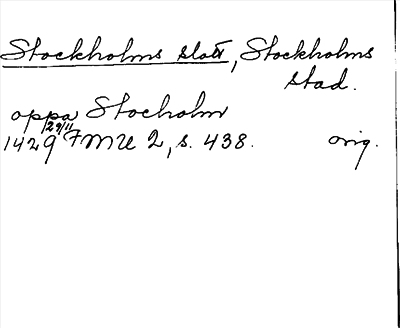 Stockholms slott, Stockholms
stad.
oppa Stocholm
1429 29/11 FMU 2, s. 438. orig.